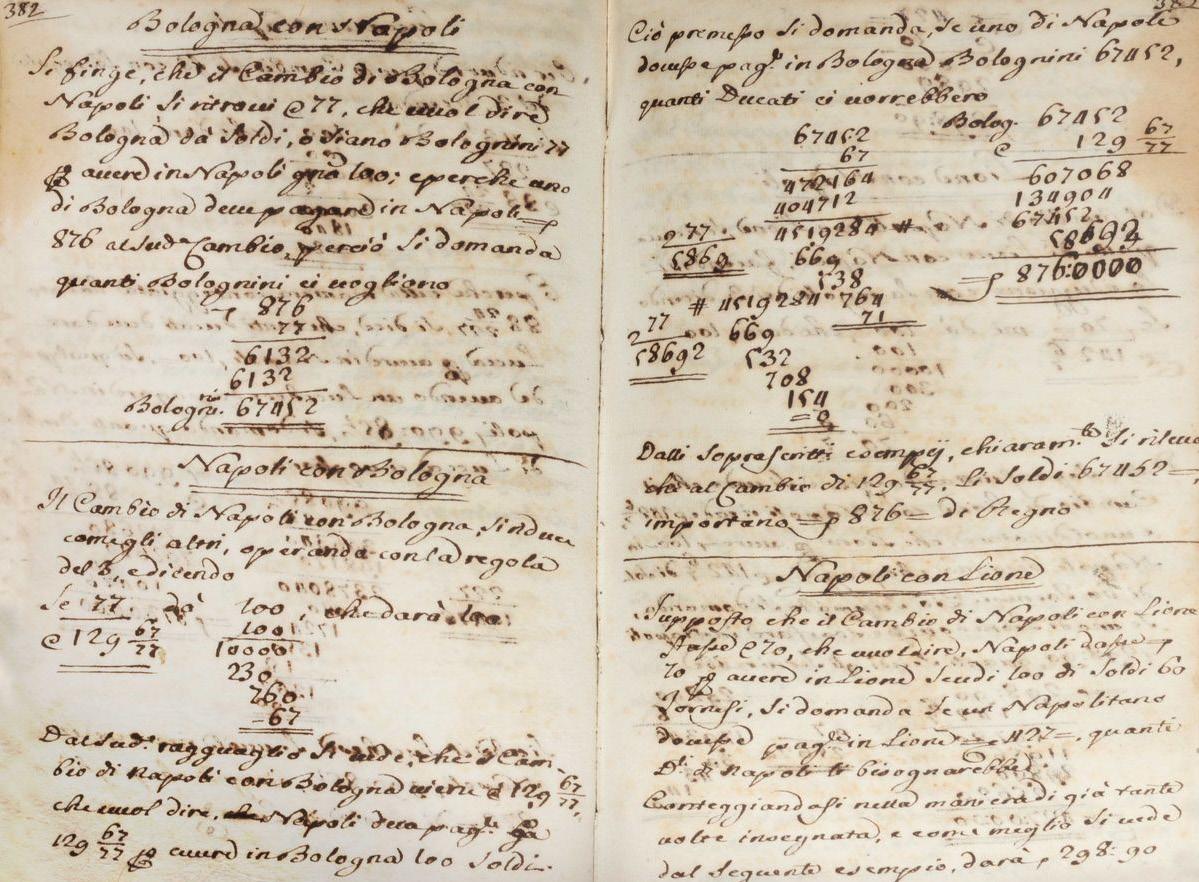 382
Bologna con Napoli
Si finge, che il Cambio di Bologna con
Napoli si ritrovi @ 77, che vuol dire
Bologna dà Soldi, ò siano Bolognini 77
per avere in Napoli grna 100; e perche uno
di Bologna deve pagare in Napoli
876 al sudo Cambio, perciò si domanda
quanti Bolognini ci vogliano
876
77
6132
6132
Bologni.ni 67452
Napoli con Bologna
Il Cambio di Napoli con Bologna, si riduce
come gli altri, operando con la regola
del 3, e dicendo
Se 77 dà 100, che darà 100
100
@ 129 67/77 10000
230
760
67
Dal sudo ragguaglio si vede, che il Cam-
bio di Napoli con Bologna viene @ 129 67/77,
che vuol dire, Napoli deve pagre
129 67/77 per avere in Bologna 100 Soldi.
382
Ciò premesso si domanda, se uno di Napoli
dovesse pagre in Bologna Bolognini 67452,
quanti Ducati ci vorrebbero
Bolog. 67452
67452 @ 129 67/77
67
472164 607068
404712 134904
4519284 # 67452
277 58692
5869 669
138 876:0000
# 4519284 764
71
277 669
58692 532
708
154
0
Dalli soprascritti esempij, chiaramte si rileva
che al Cambio di 129 67/77, li Soldi 67452
importano 876 di Regno
Napoli con Lione
Supposto che il Cambio di Napoli con Lione
stasse @ 70, che vuol dire, Napoli dasse
70 per avere in Lione Scudi 100 di Soldi 60
Tornesi, si domanda se un Napolitano
dovesse pagre in Lione 427, quanti
Dti di Napoli bisognarebbe
Conteggiandosi nella maniera di già tante
volte insegnata, e come meglio si vede
dal seguente esempio, darà 298:90